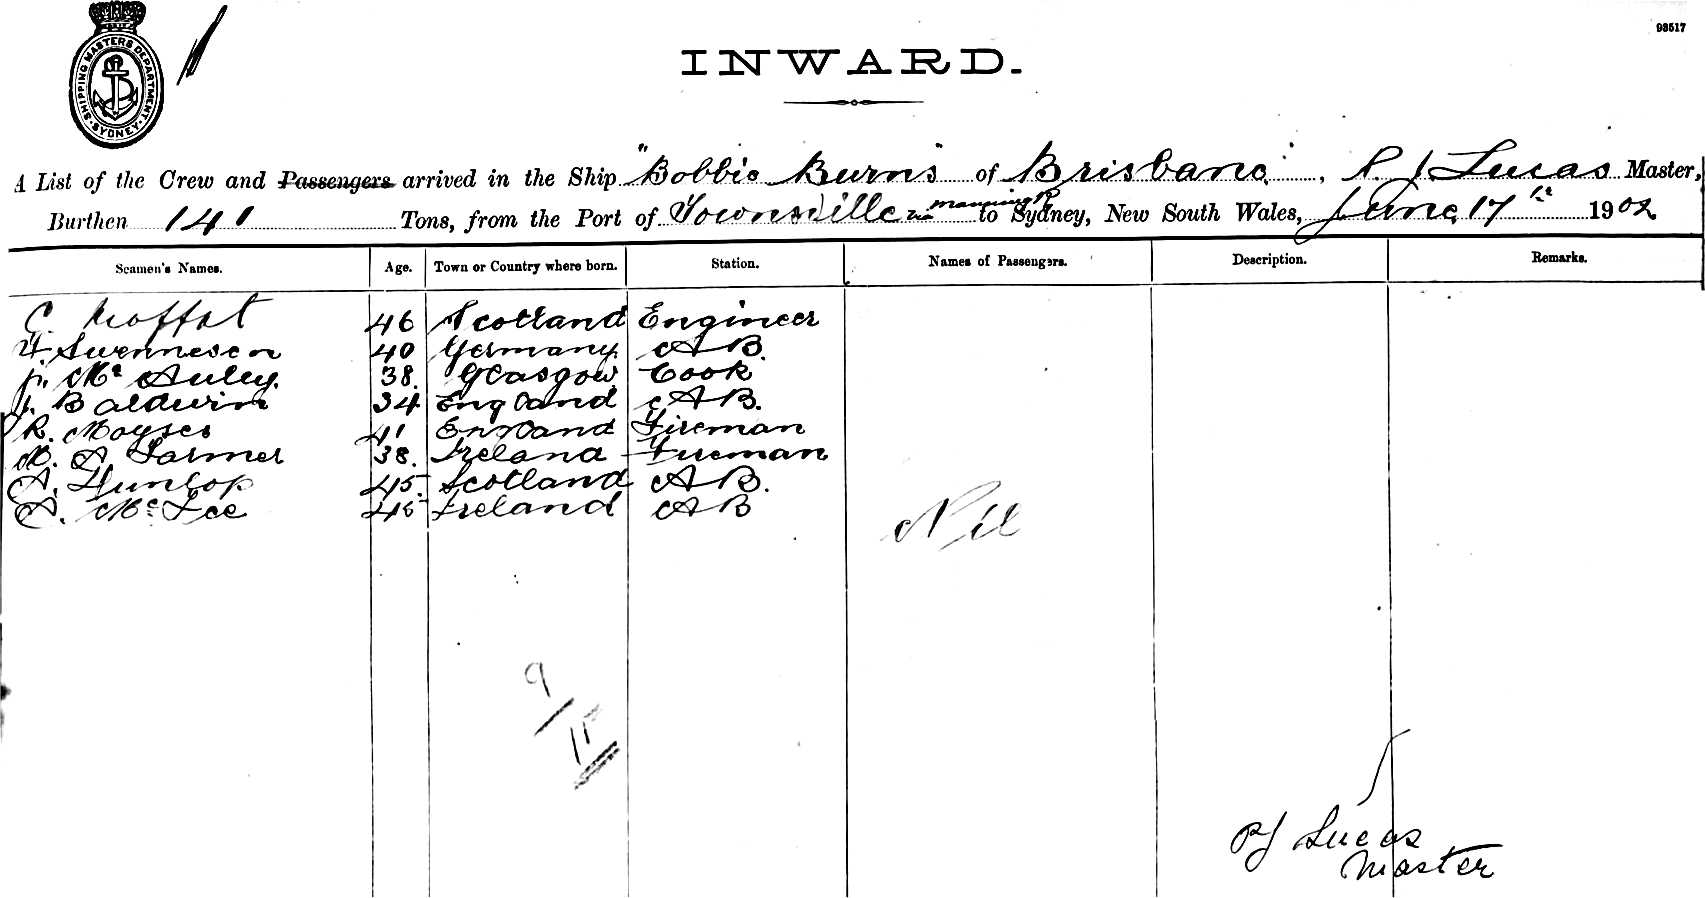 SHIPPING MASTERS DEPARTMENT SYDNEY
93517
INWARD.
A List of the Crew and Passengers arrived in the Ship "Bobbie Burns" of Brisbane, P. J. Lucas Master,
Burthen 141 Tons, from the Port of Townsville via Manning R to Sydney, New South Wales, June 17th 1902
Seamen's Names. Age. Town or Country where born. Station. Names of Passengers. Description. Remarks.
C. Moffat 46 Scotland Engineer
Swennesen 40 Germany AB.
Mc Auley. 38. Glasgow Cook
J. Baldwin 34 England AB.
R. Moyses 41 England Fireman
M. A Farmer 38. Ireland Fireman
A. Dunlop 45. Scotland AB.
A. Mc Fee 45 Ireland AB
Nil
9
P J Lucas
Master